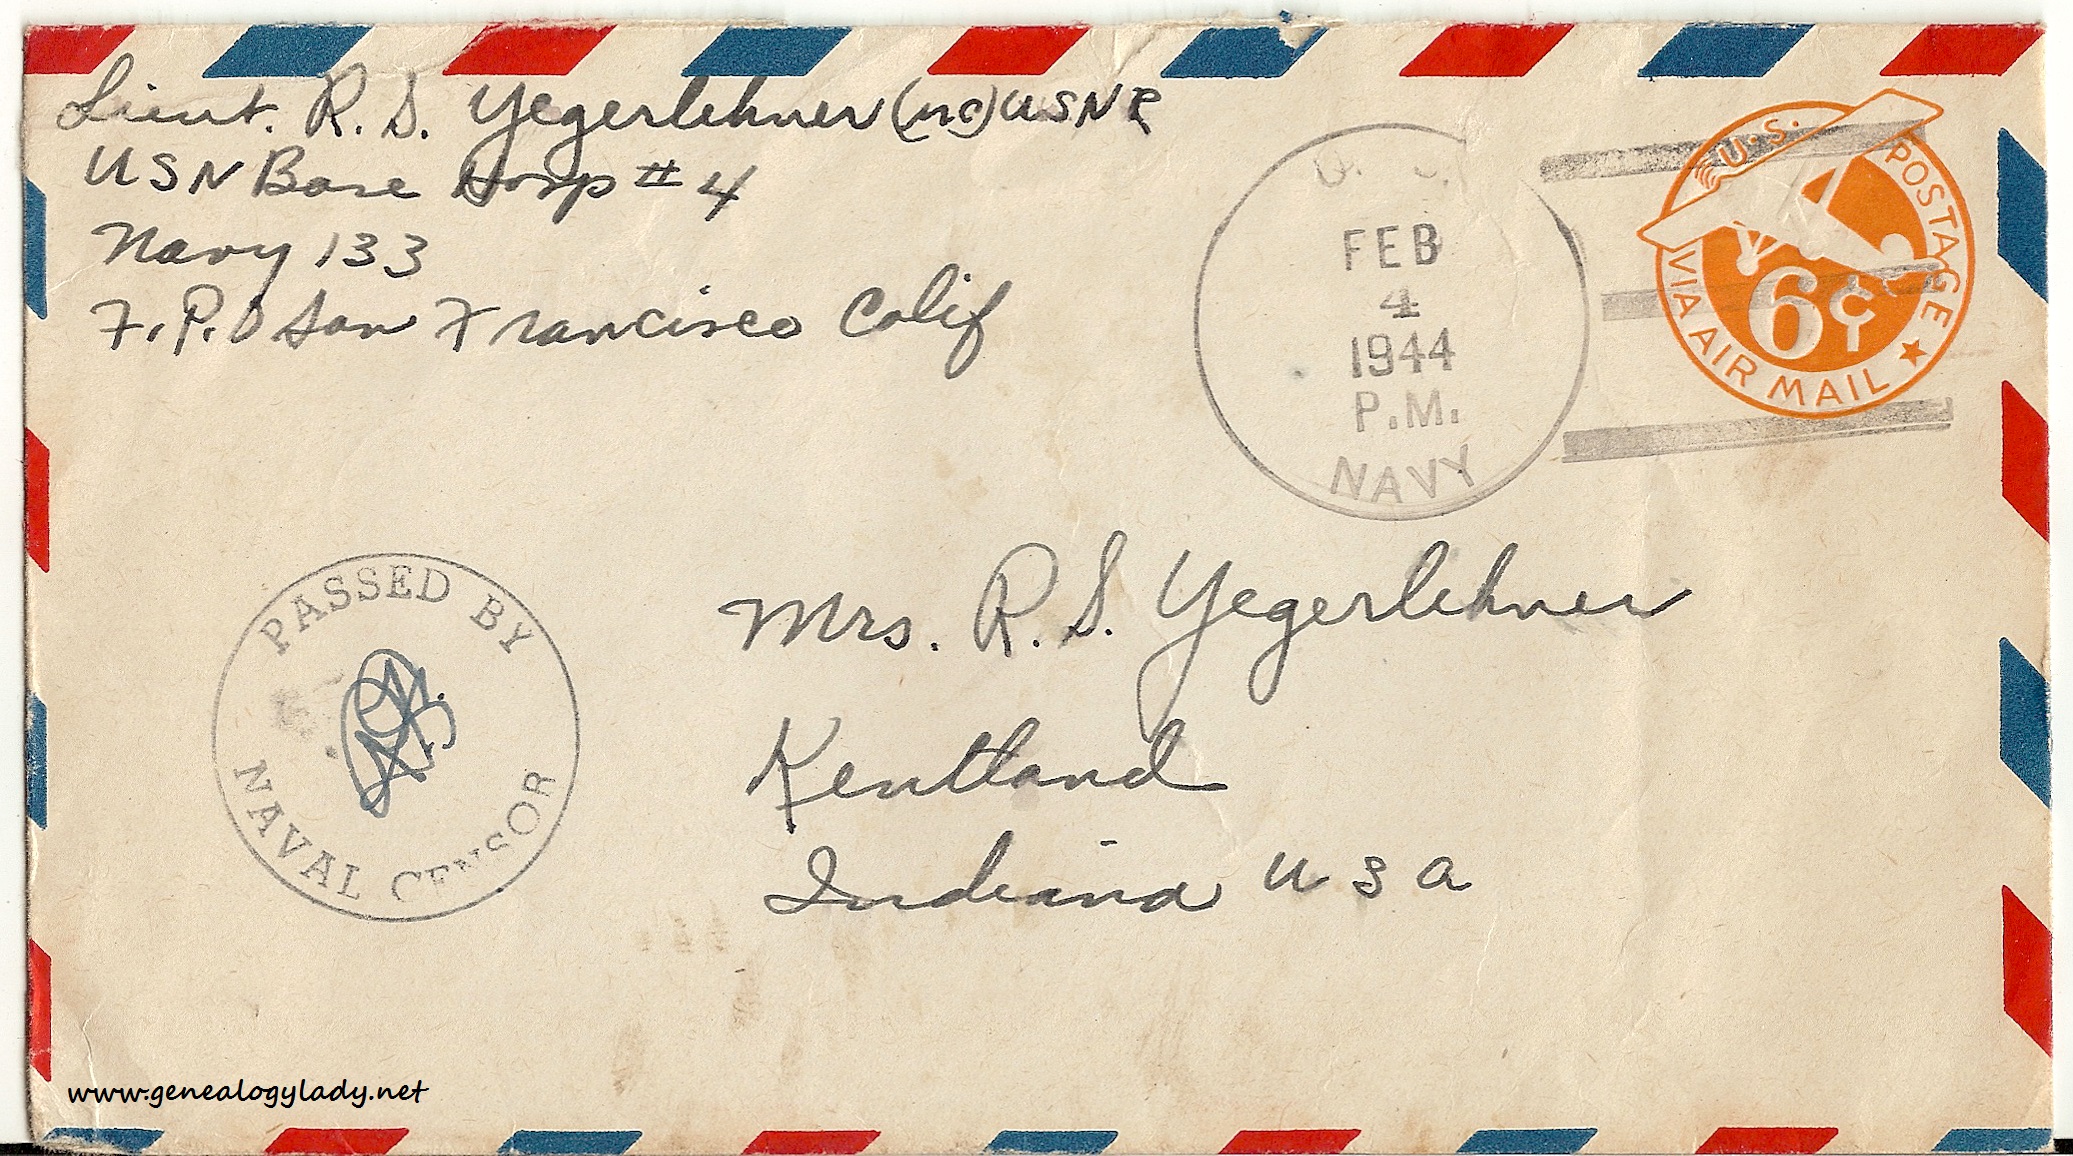 Lieut. R. S. Yegerlehner (mc) USNR
USN Base Hosp # 4
Navy 133
F.P.O San Francisco Calif
U. S.
FEB
4
1944
P.M.
NAVY
U.S. POSTAGE
6¢
VIA AIR MAIL
PASSED BY
NAVAL CENSOR
Mrs. R. S. Yegerlehner
Kentland
Indiana U S A
www.genealogylady.net